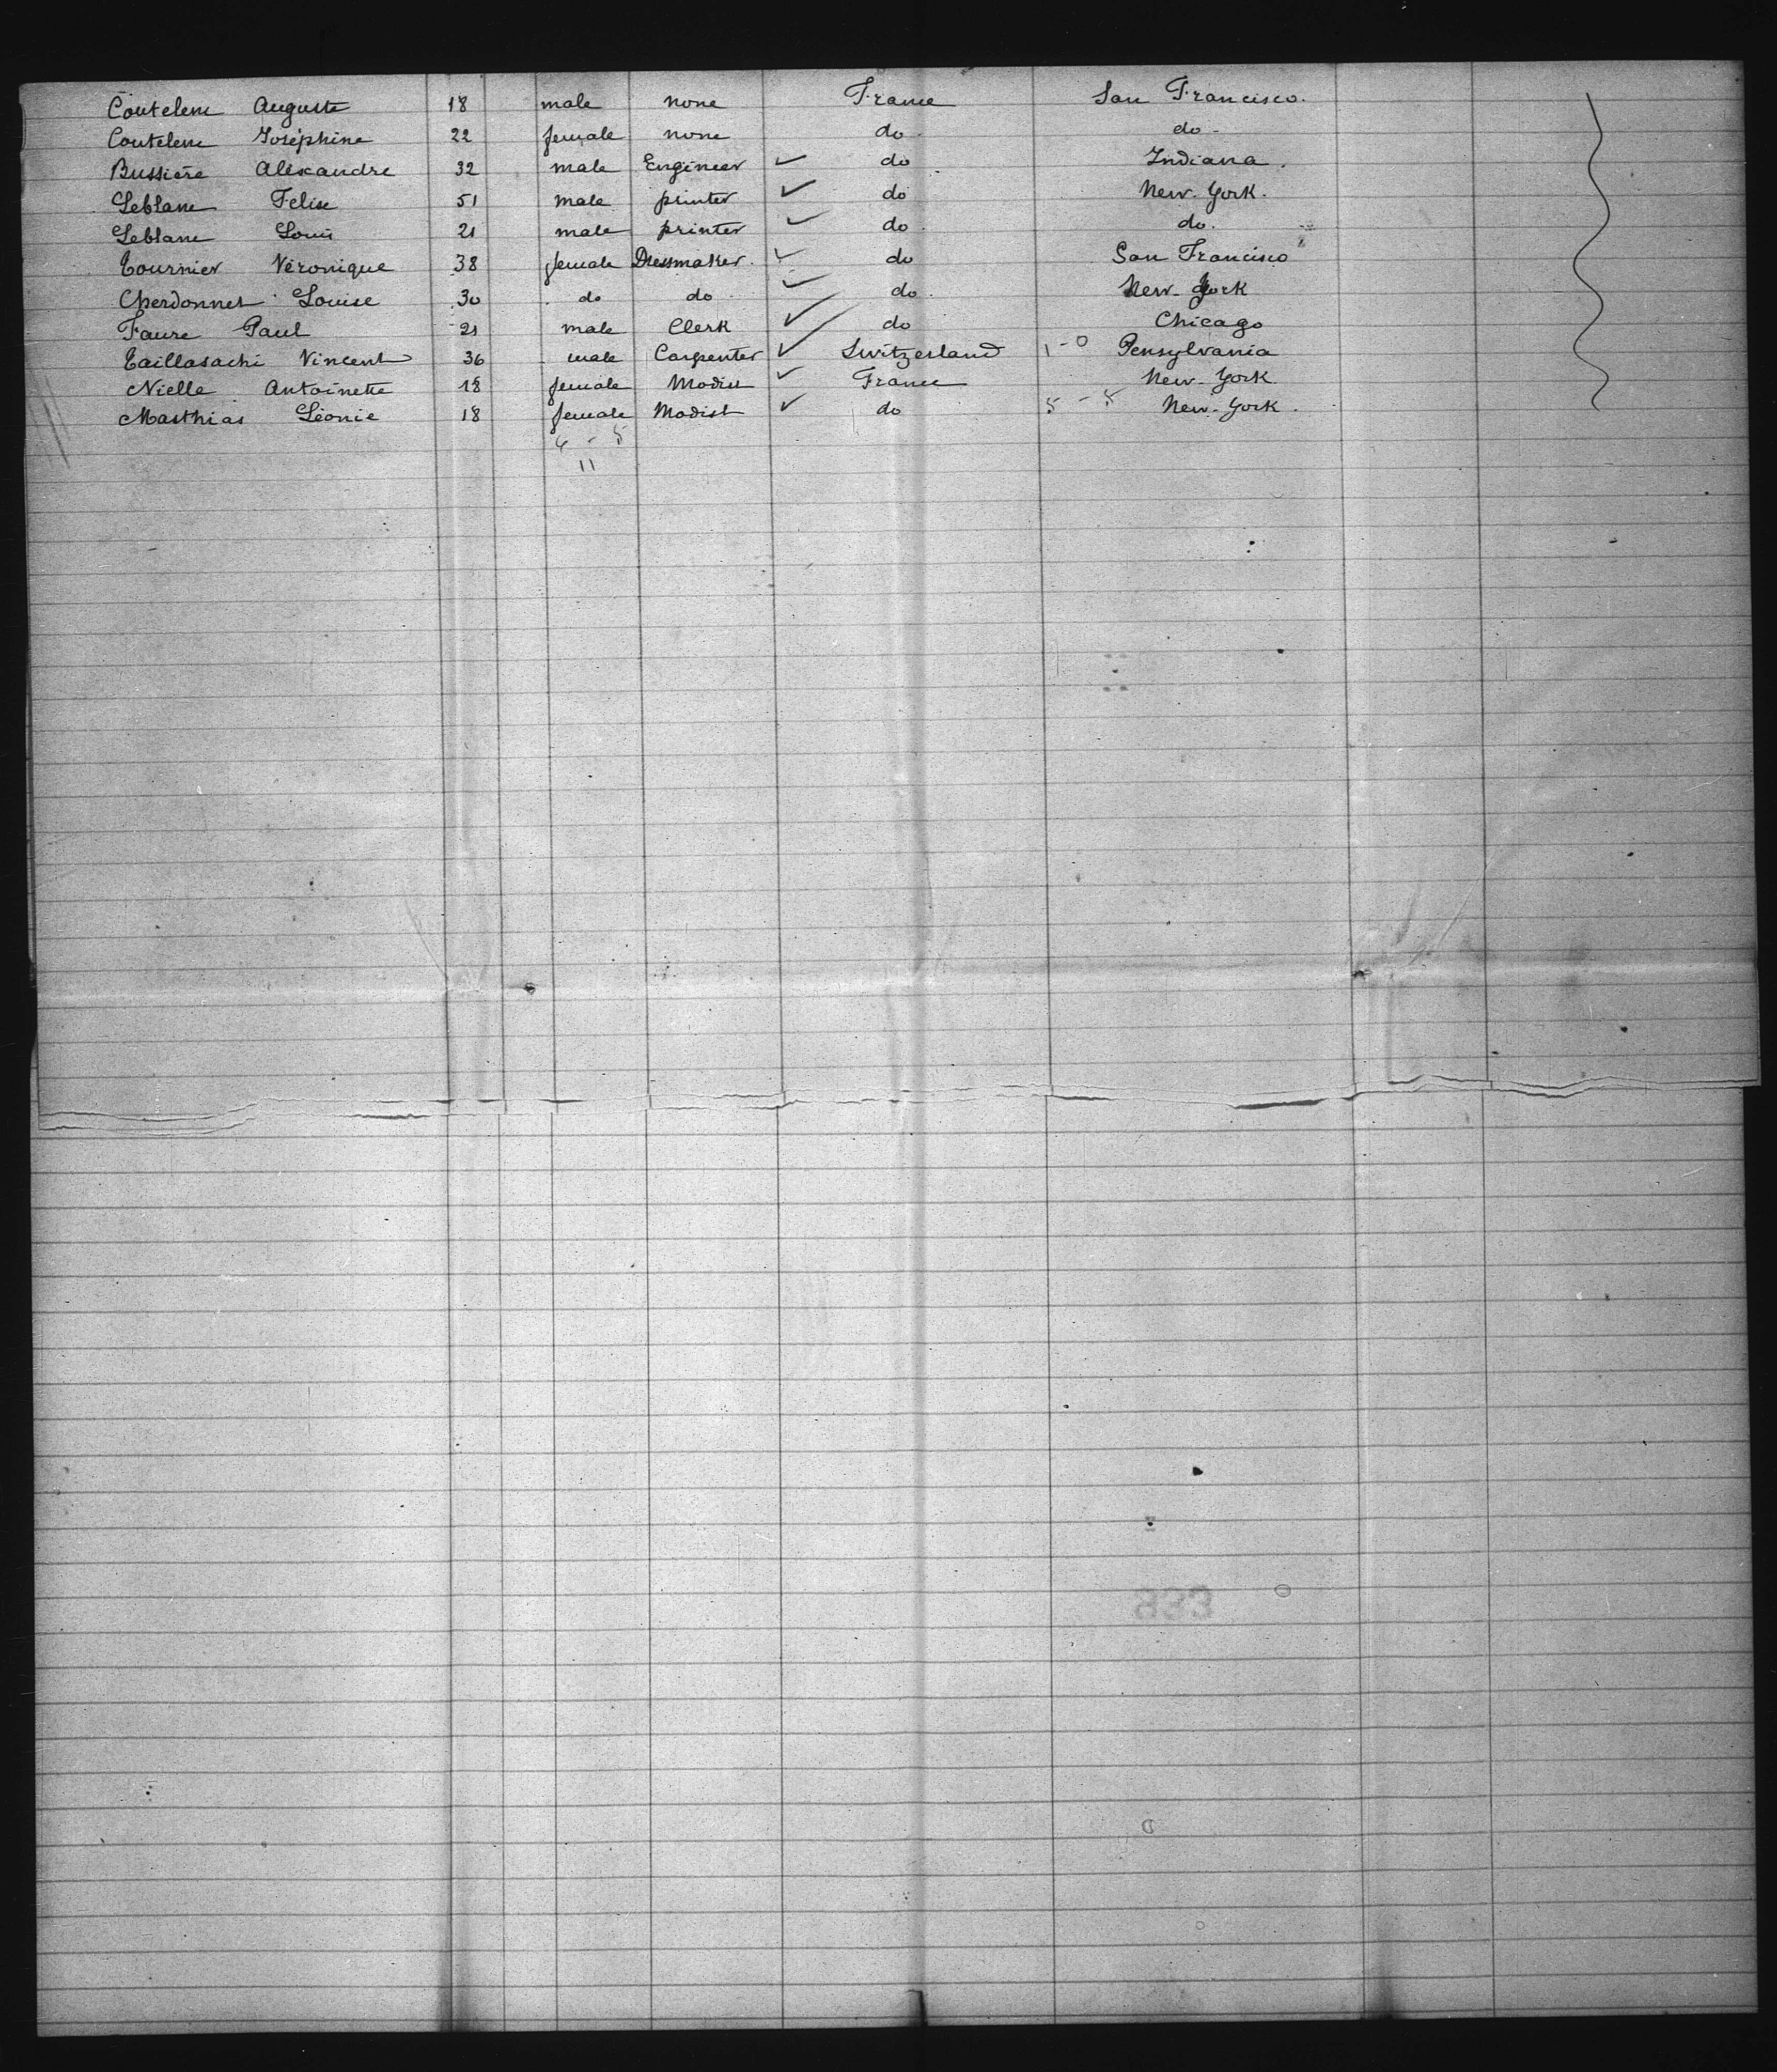 Coutelenc Auguste 18 male none France San Francisco.
Coutelenc Joséphine 22 female none do do
Bussière Alexandre 32 male Engineer ✓ do Indiana.
Leblanc Felise 51 male printer ✓ do New-York.
Leblanc Louis 21 male printer ✓ do. do.
Tournier Véronique 38 female Dressmaker. ✓ do San Francisco
Cherdonnet Louise 30 do do ✓ do. New-York
Faure Paul 21 male Clerk ✓ do Chicago
Taillasachi Vincent 36 male Carpenter ✓ Switzerland 1-0 Pensylvania
Nielle Antoinette 18 female Modist ✓ France New-York
Masthias Léonie 18 female Modist ✓ do 5-5 New-York.
6-5
11